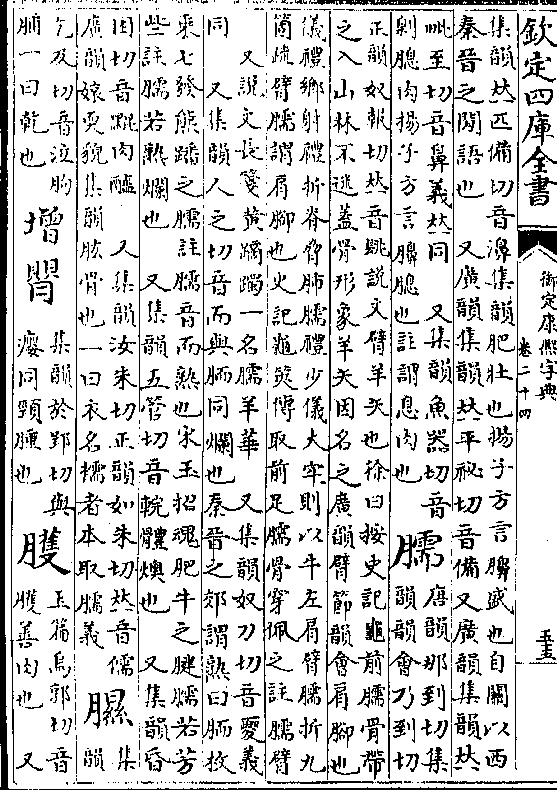 欽定四庫全書
御定康熙字典
卷二十四
集韻𠀤匹備切音濞集韻肥壯也揚子方言膞盛也自關以西
秦晉之閒語也　又廣韻集韻𠀤平祕切音備又廣韻集韻𠀤
毗至切音鼻義𠀤同　又集韻魚器切音
劓腮肉揚子方言膞腮也註謂息肉也
臑
唐韻那到切集
韻韻會乃到切
正韻奴報切𠀤音　說文臂羊矢也徐曰按史記龜前臑骨帶
之入山林不迷蓋骨形象羊矢因名之廣韻臂節韻會肩脚也
儀禮鄉射禮折脊脅肺臑禮少儀大牢則以牛左肩臂臑折九
箇疏臂臑謂肩脚也史記龜筴傳取前足臑骨穿佩之註臑臂
又說文長箋黃躑躅一名臑羊華　又集韻奴刀切音夒義
同　又集韻人之切音而與胹同爛也秦晉之郊謂熟曰胹枚
乘七發熊蹯之臑註臑音而熟也宋玉招魂肥牛之腱臑若芳
些註臑若熟爛也　又集韻五管切音輐體燠也　又集韻昏
困切音　肉醢　又集韻汝朱切正韻如朱切𠀤音儒
廣韻嬽耎貌集韻肱骨也一曰衣名襦者本取臑義
集
韻
乞及切音泣胊
脯一曰乾也
集韻於郢切與
癭同頸腫也
臒
玉篇烏郭切音
臒善肉也　又